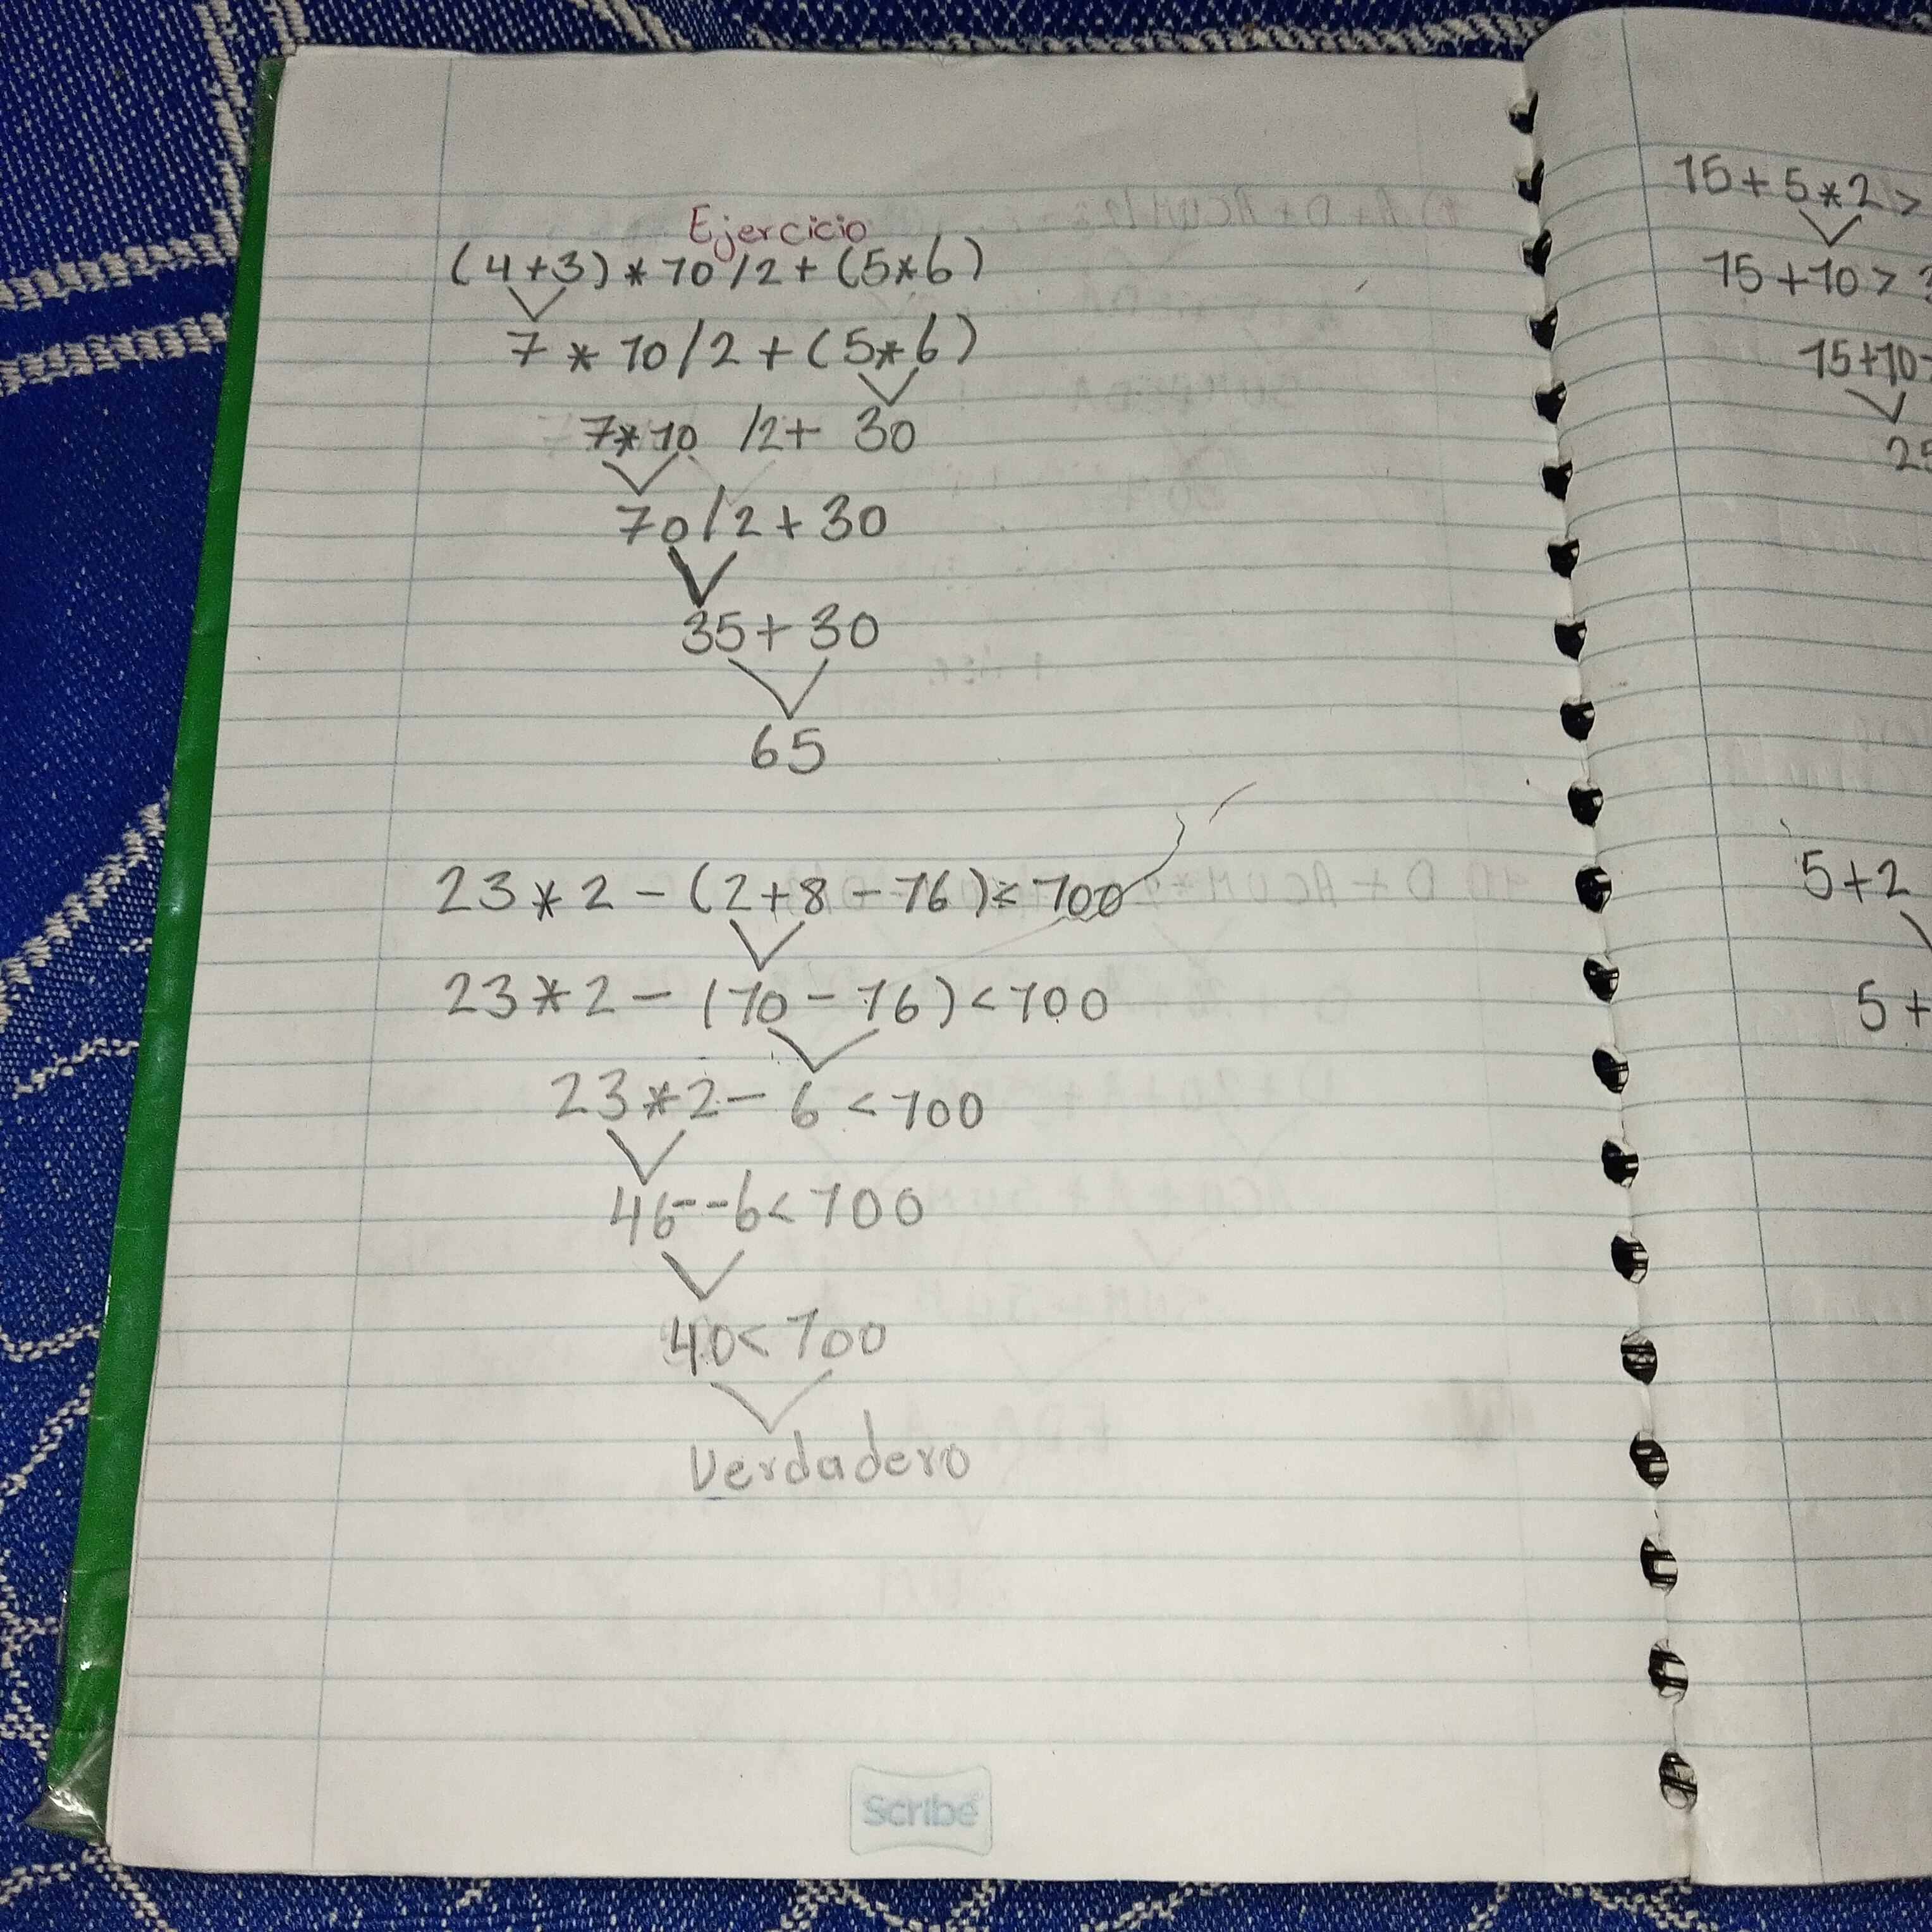 Ejercicio
(4+3)*10/2+(5*6)
7*10/2+(5*6)
7*10/2+30
70/2+30
35+30
65
23*2-(2+8-16)<100
23*2-(10-16)<100
23*2-6<100
46--6<100
40<100
Verdadero
Scribe
15+5*2>
15+10>
15+10
25
5+2
5+